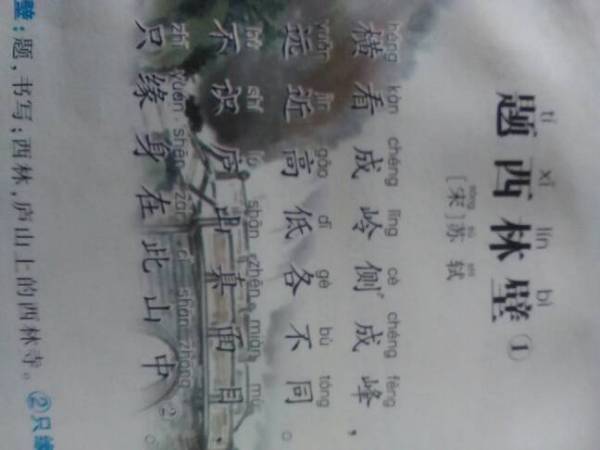 tí xī lín bì
题西林壁①
sòng sū shì
[宋]苏轼
héng kàn chéng lǐng cè chéng fēng
横看成岭侧成峰，
yuǎn jìn gāo dī gè bù tóng
远近高低各不同。
bù shí lú shān zhēn miàn mù
不识庐山真面目，
zhǐ yuán shēn zài cǐ shān zhōng
只缘身在此山中②。
壁：题，书写；西林，庐山上的西林寺。②只缘